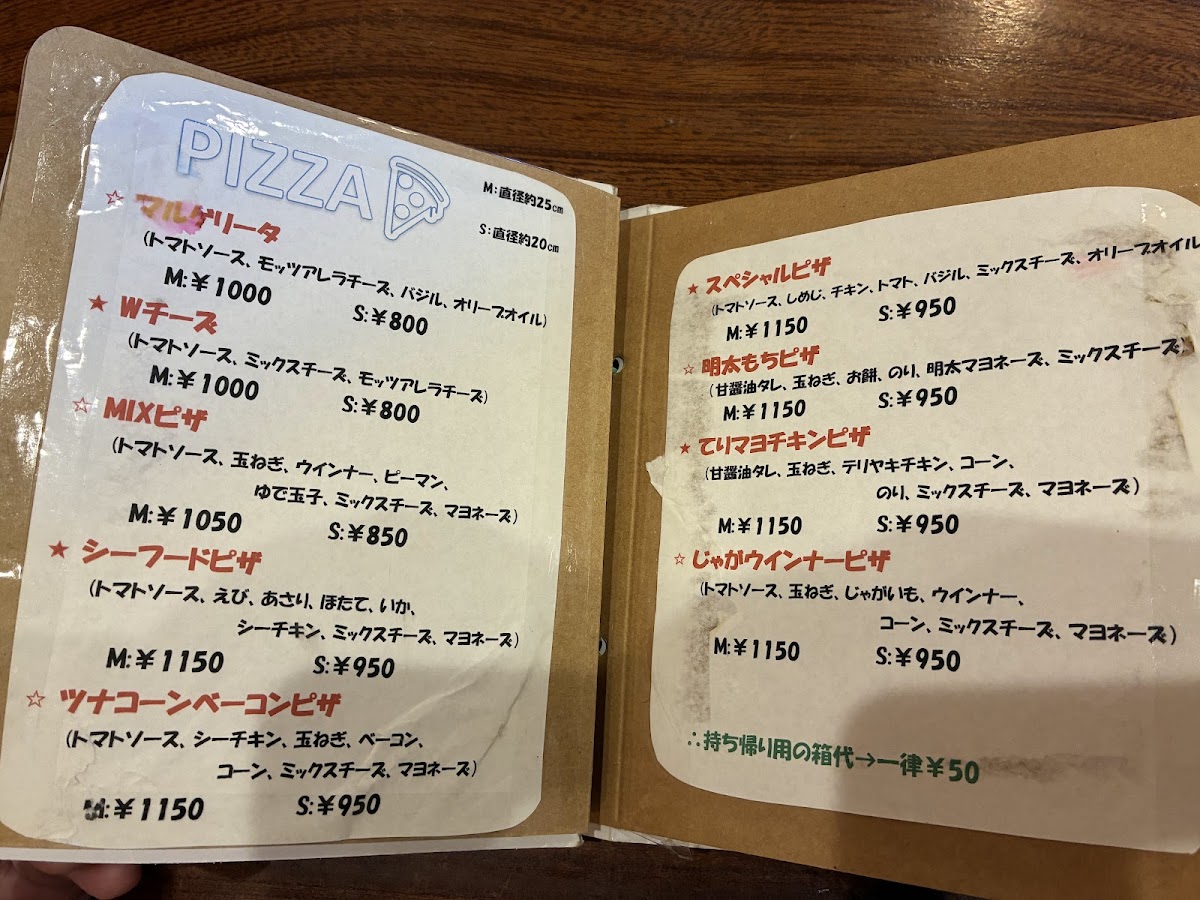 PIZZA
M:直径約25cm
S:直径約20cm
☆ マルゲリータ
(トマトソース、モッツアレラチーズ、バジル、オリーブオイル)
M:¥1000 S:¥800
★ Wチーズ
(トマトソース、ミックスチーズ、モッツアレラチーズ)
M:¥1000 S:¥800
☆ MIXピザ
(トマトソース、玉ねぎ、ウインナー、ピーマン、
ゆで玉子、ミックスチーズ、マヨネーズ)
M:¥1050 S:¥850
★ シーフードピザ
(トマトソース、えび、あさり、ほたて、いか、
シーチキン、ミックスチーズ、マヨネーズ)
M:¥1150 S:¥950
☆ ツナコーンベーコンピザ
(トマトソース、シーチキン、玉ねぎ、ベーコン、
コーン、ミックスチーズ、マヨネーズ)
M:¥1150 S:¥950
★ スペシャルピザ
(トマトソース、しめじ、チキン、トマト、バジル、ミックスチーズ、オリーブオイル
M:¥1150 S:¥950
☆ 明太もちピザ
(甘醤油タレ、玉ねぎ、お餅、のり、明太マヨネーズ、ミックスチーズ)
M:¥1150 S:¥950
★ てりマヨチキンピザ
(甘醤油タレ、玉ねぎ、テリヤキチキン、コーン、
のり、ミックスチーズ、マヨネーズ)
M:¥1150 S:¥950
☆ じゃがウインナーピザ
(トマトソース、玉ねぎ、じゃがいも、ウインナー、
コーン、ミックスチーズ、マヨネーズ)
M:¥1150 S:¥950
∴持ち帰り用の箱代→一律¥50